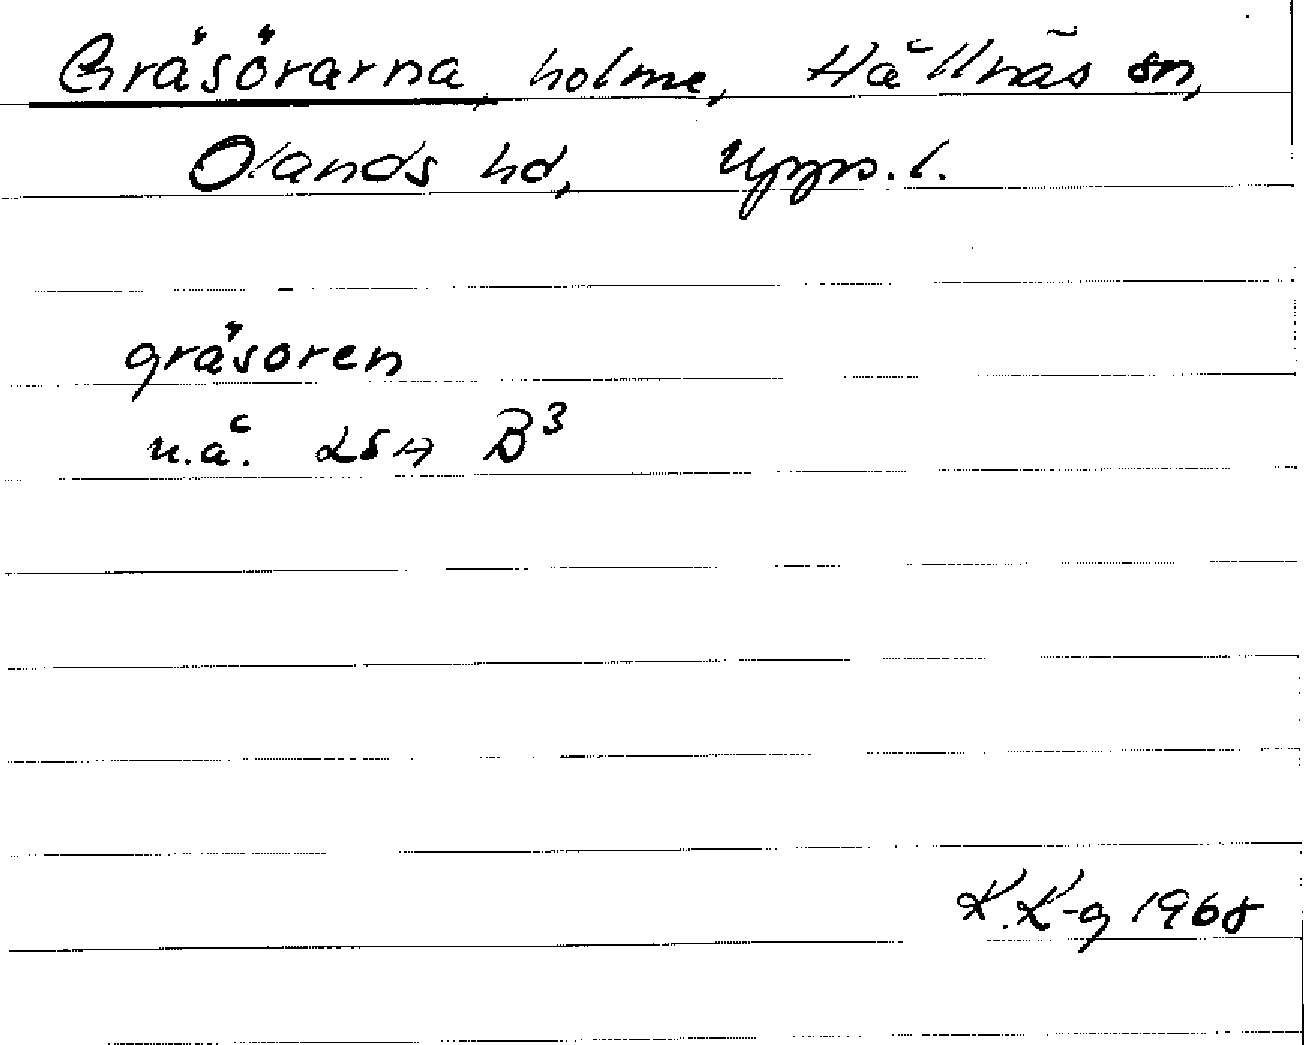 Gräsörarna, holme, Hållnäs sn,
Olands hd, Upps. l.
gräsören
u.å. LSA B³
K. K-g 1968